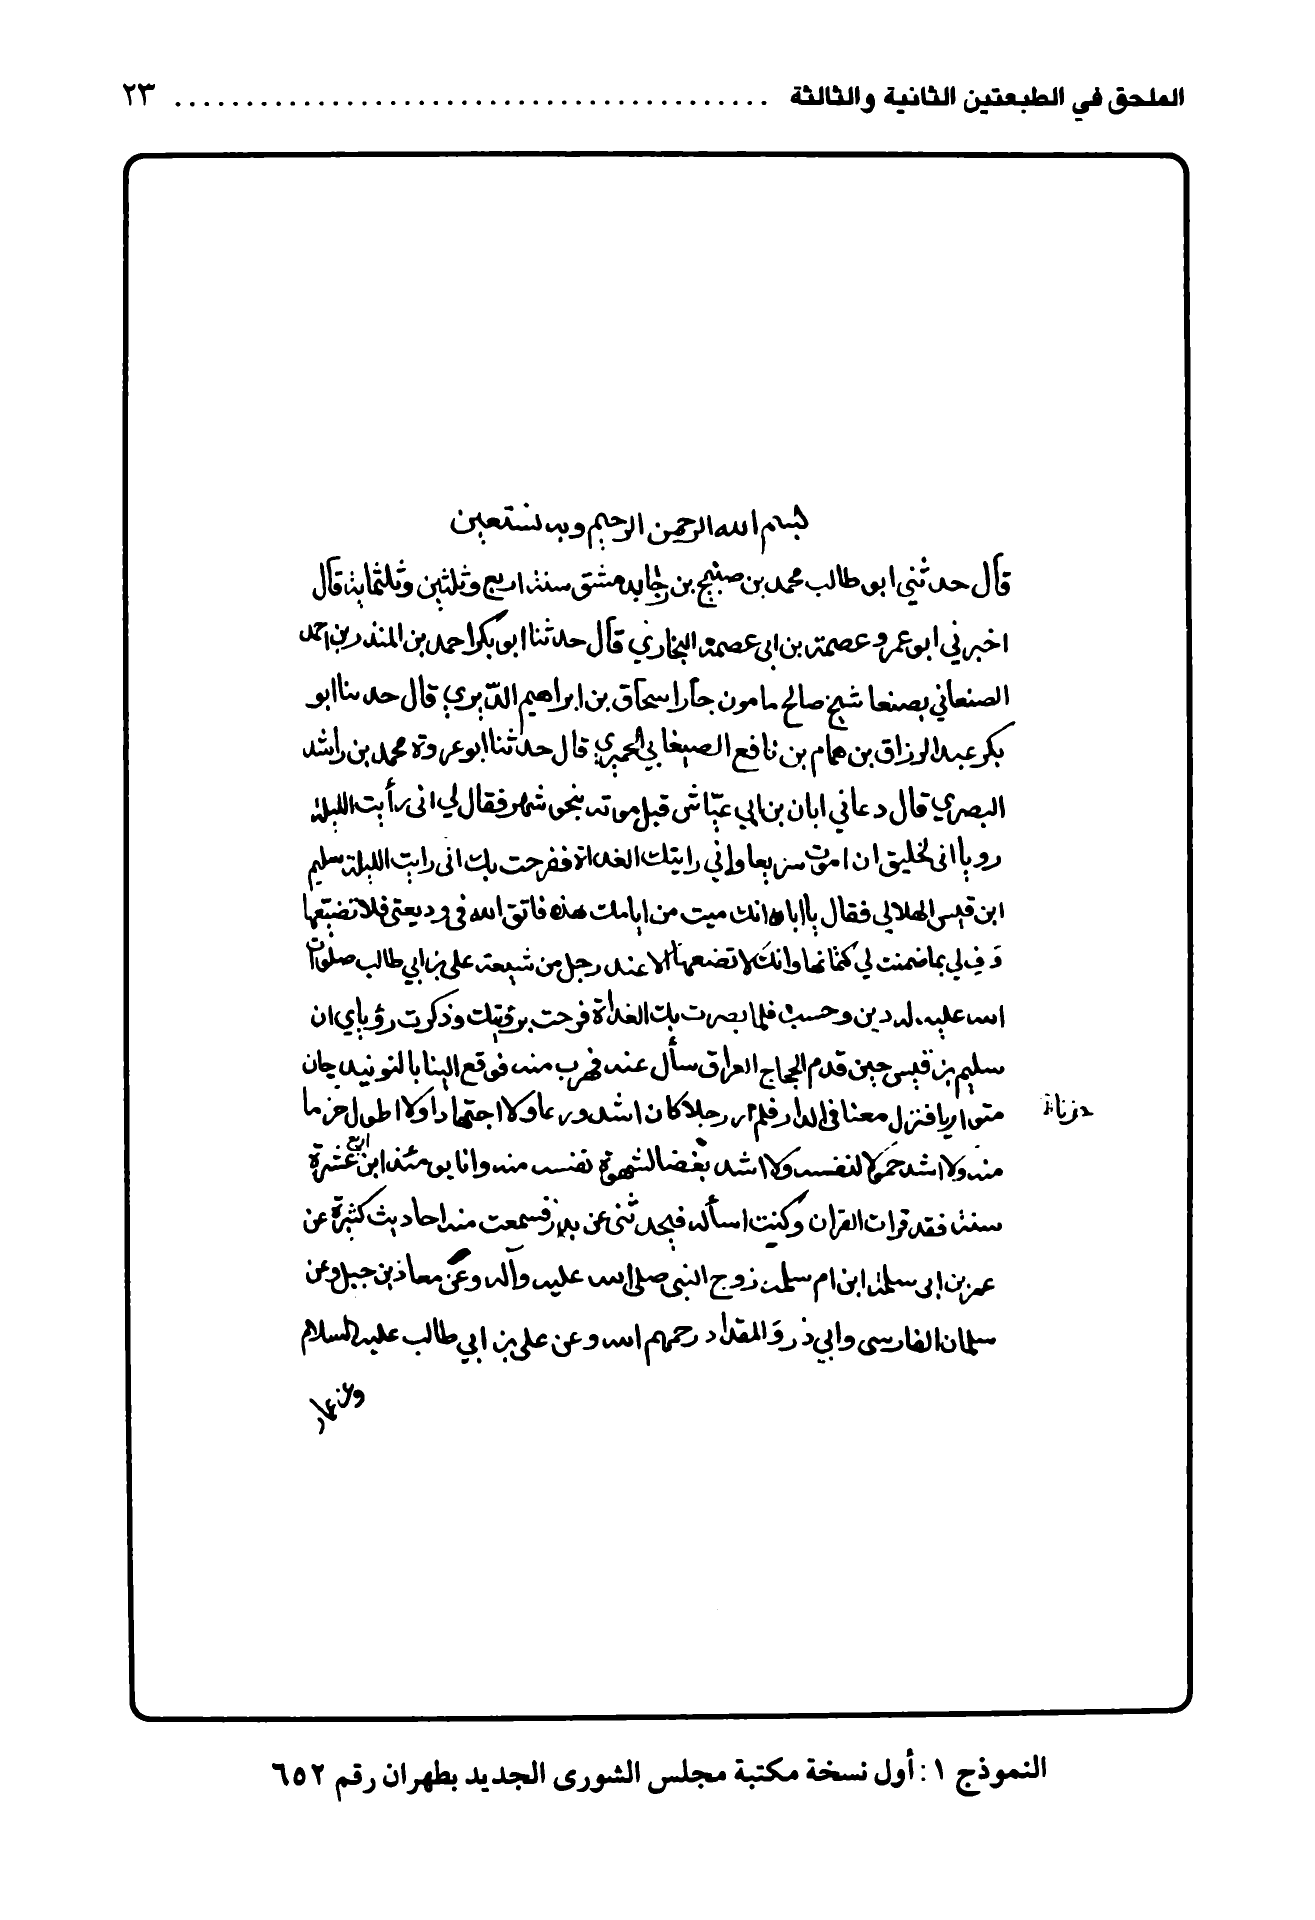 الملحق في الطبعتين الثانية والثالثة ........................................ ٢٣
بسم الله الرحمن الرحيم وبه نستعين
قال حدثني ابو طالب محمد بن صبيح بن رجا بدمشق سنة اربع وثلثين وثلثماية قال
اخبرني ابو عمرو عصمة بن ابى عصمة البخاري قال حدثنا ابو بكر احمد بن المنذر بن احمد
الصنعاني بصنعا شيخ صالح مامون جار اسحاق بن ابراهيم الدبري قال حدثنا ابو
بكر عبد الرزاق بن همام بن نافع الصنعاني الحميري قال حدثنا ابو عروة محمد بن راشد
البصري قال دعاني ابان بن ابي عياش قبل موته بنحو شهر فقال لي انى رأيت الليلة
رويا انى لخليق ان اموت سريعا واني رايتك الغداة ففرحت بك انى رايت الليلة سليم
ابن قيس الهلالي فقال يا ابان انك ميت من ايامك هذه فاتق الله في وديعتى فلا تضيعها
وَفِ لي بما ضمنت لي كتمانها وانك لا تضعها الا عند رجل من شيعة على بن ابي طالب صلوات
الله عليه له دين وحسب فلما بصرت بك الغداة فرحت برؤيتك وذكرت رؤياي ان
سليم بن قيس حين قدم الحجاج العراق سأل عنه فهرب منه فوقع الينا بالنوبندجان
متواريا فنزل معنا في الدار فلم ار رجلا كان اشد ورعا ولا اجتهادا ولا اطول حزما
حزنا
منه ولا اشد خمولا لنفسه ولا اشد بغضا لشهوة نفسه منه وانا يومئذ ابن اربع عشرة
سنة فقد قرات القران وكنت اسأله فيحدثنى عن بدر فسمعت منه احاديث كثيرة عن
عمر بن ابى سلمة ابن ام سلمة زوج النبى صلى الله عليه وآله وعن معاذ بن جبل وعن
سلمان الفارسى وابي ذر والمقداد رحمهم الله وعن على بن ابي طالب عليه السلام
وعن عمار
النموذج ١ : أول نسخة مكتبة مجلس الشورى الجديد بطهران رقم ٦٥٢